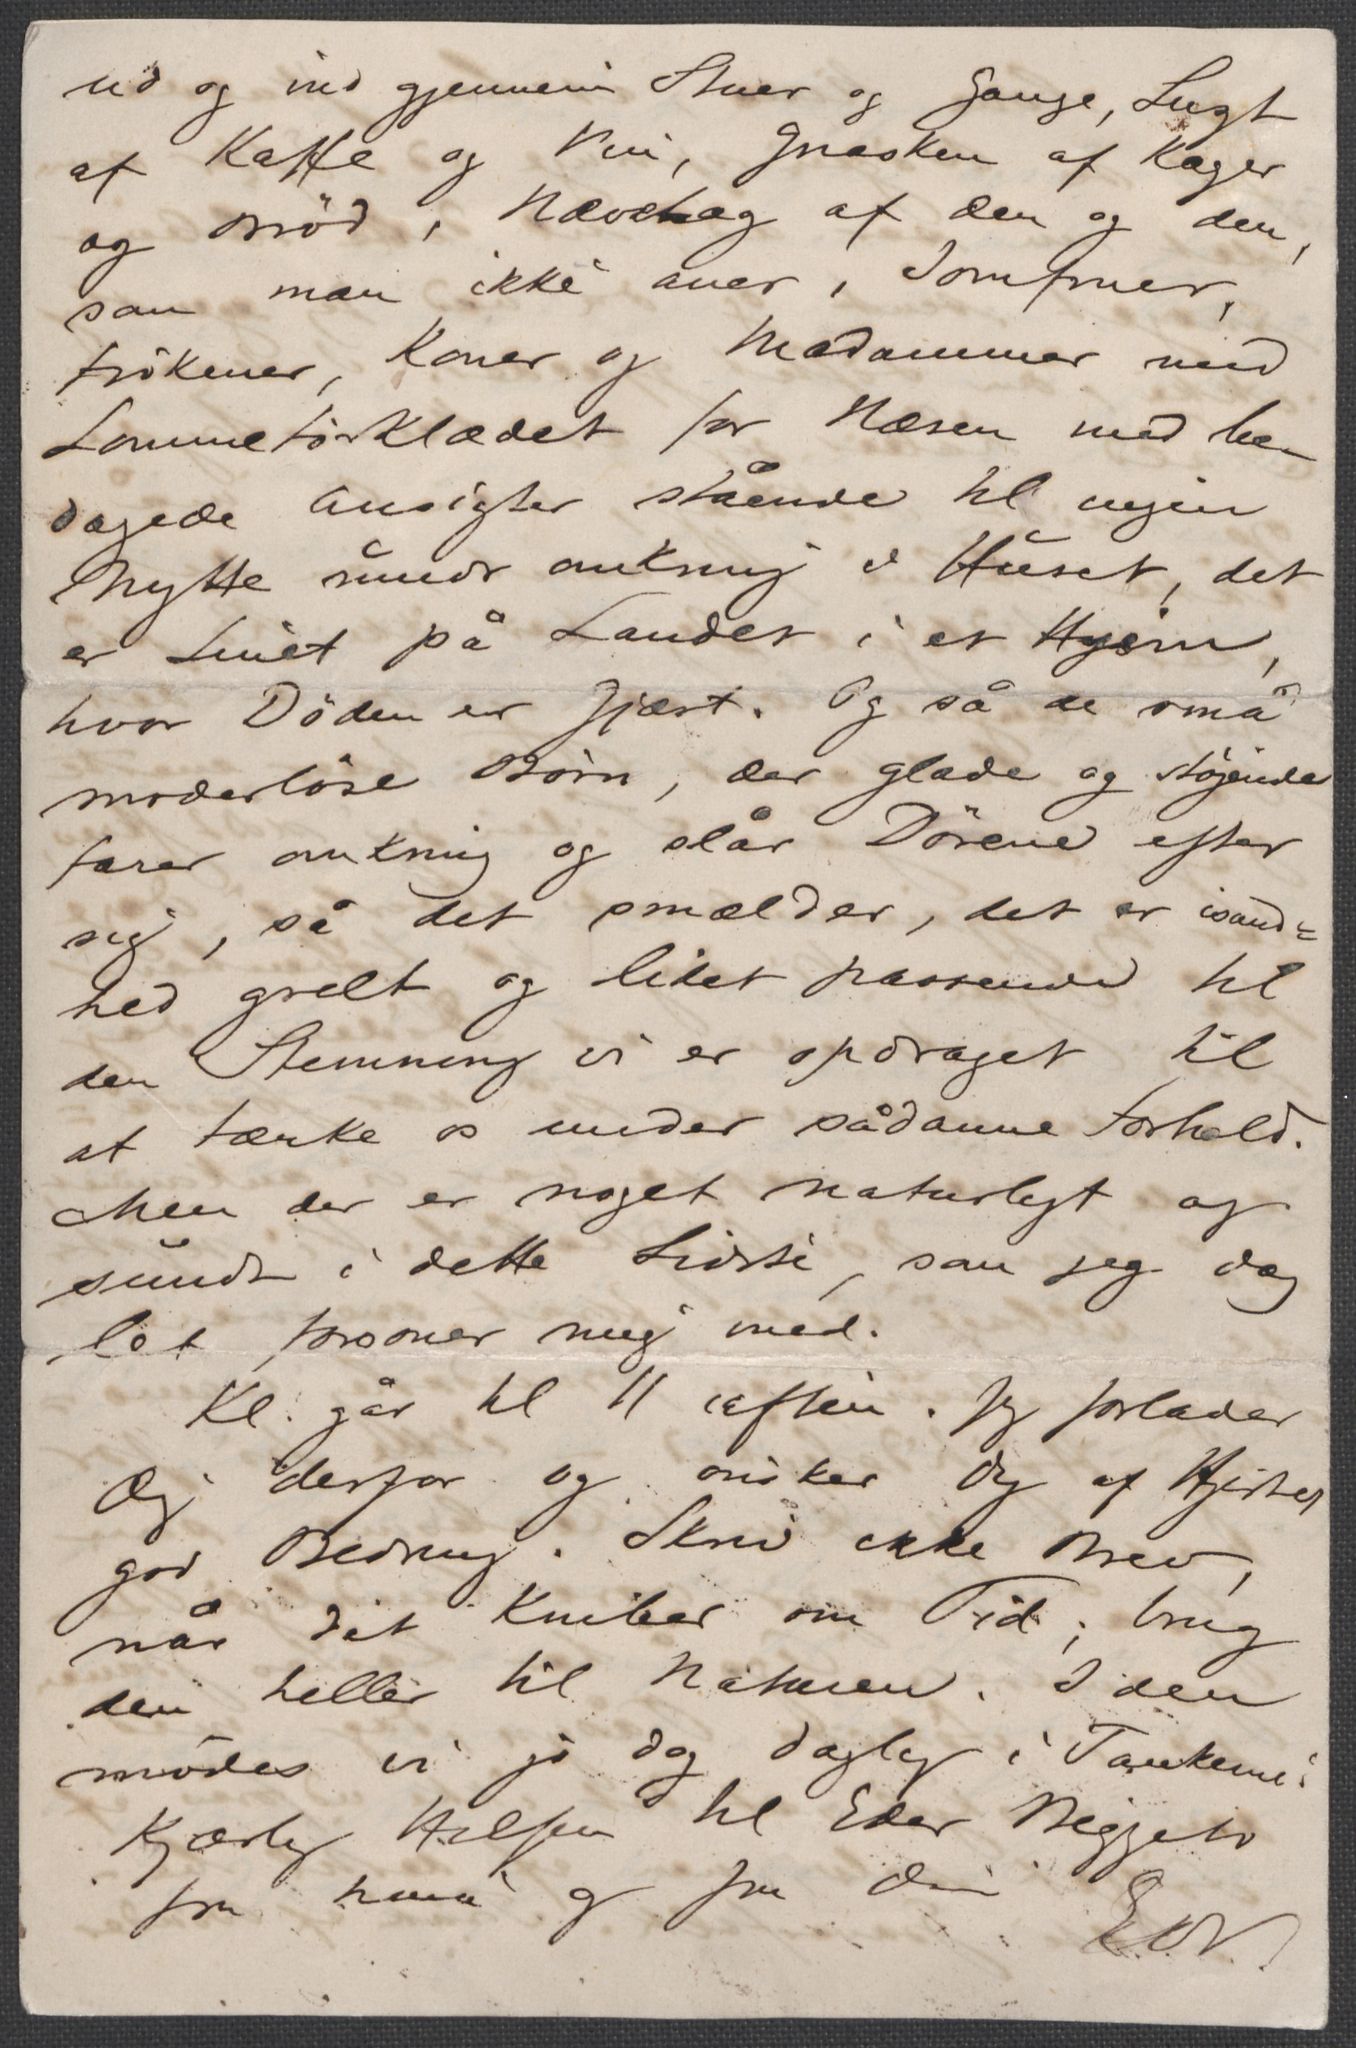 ud og ind gjennem Stuer og Gange, Lugt
af Kaffe og Vin, Gnasken af Kager
og Brød, Nærværelse af den og den,
som man ikke aner, Jomfruer,
Frøkener, Koner og Madammer med
Lommetørklædet for Næsen med be
dagede Ansigter stående til ingen
Nytte rundt omkring i Huset, det
er Livet på Landet i et Hjem,
hvor Döden er Gjæst. Og så de små
moderlöse Börn, der glade og støjende
farer omkring og slår Dörene efter
sig, så det smælder, det er isand=
hed grelt og lidet passende til
den Stemning vi er opdraget til
at tænke os under sådanne Forhold.
Men der er noget naturligt og
sundt i dette Sidste, som jeg dog
let forsoner mig med.
Kl. går til 11 iaften. Jeg forlader
Dig derfor og ønsker Dig af Hjertet
god Bedring. Skriv ikke Brev,
når det kniber om Tid; brug
den heller til Naturen. I den
mödes vi jo dog daglig i Tankerne.
Kjærlig Hilsen til Eder Begge to
fra hende og fra Din